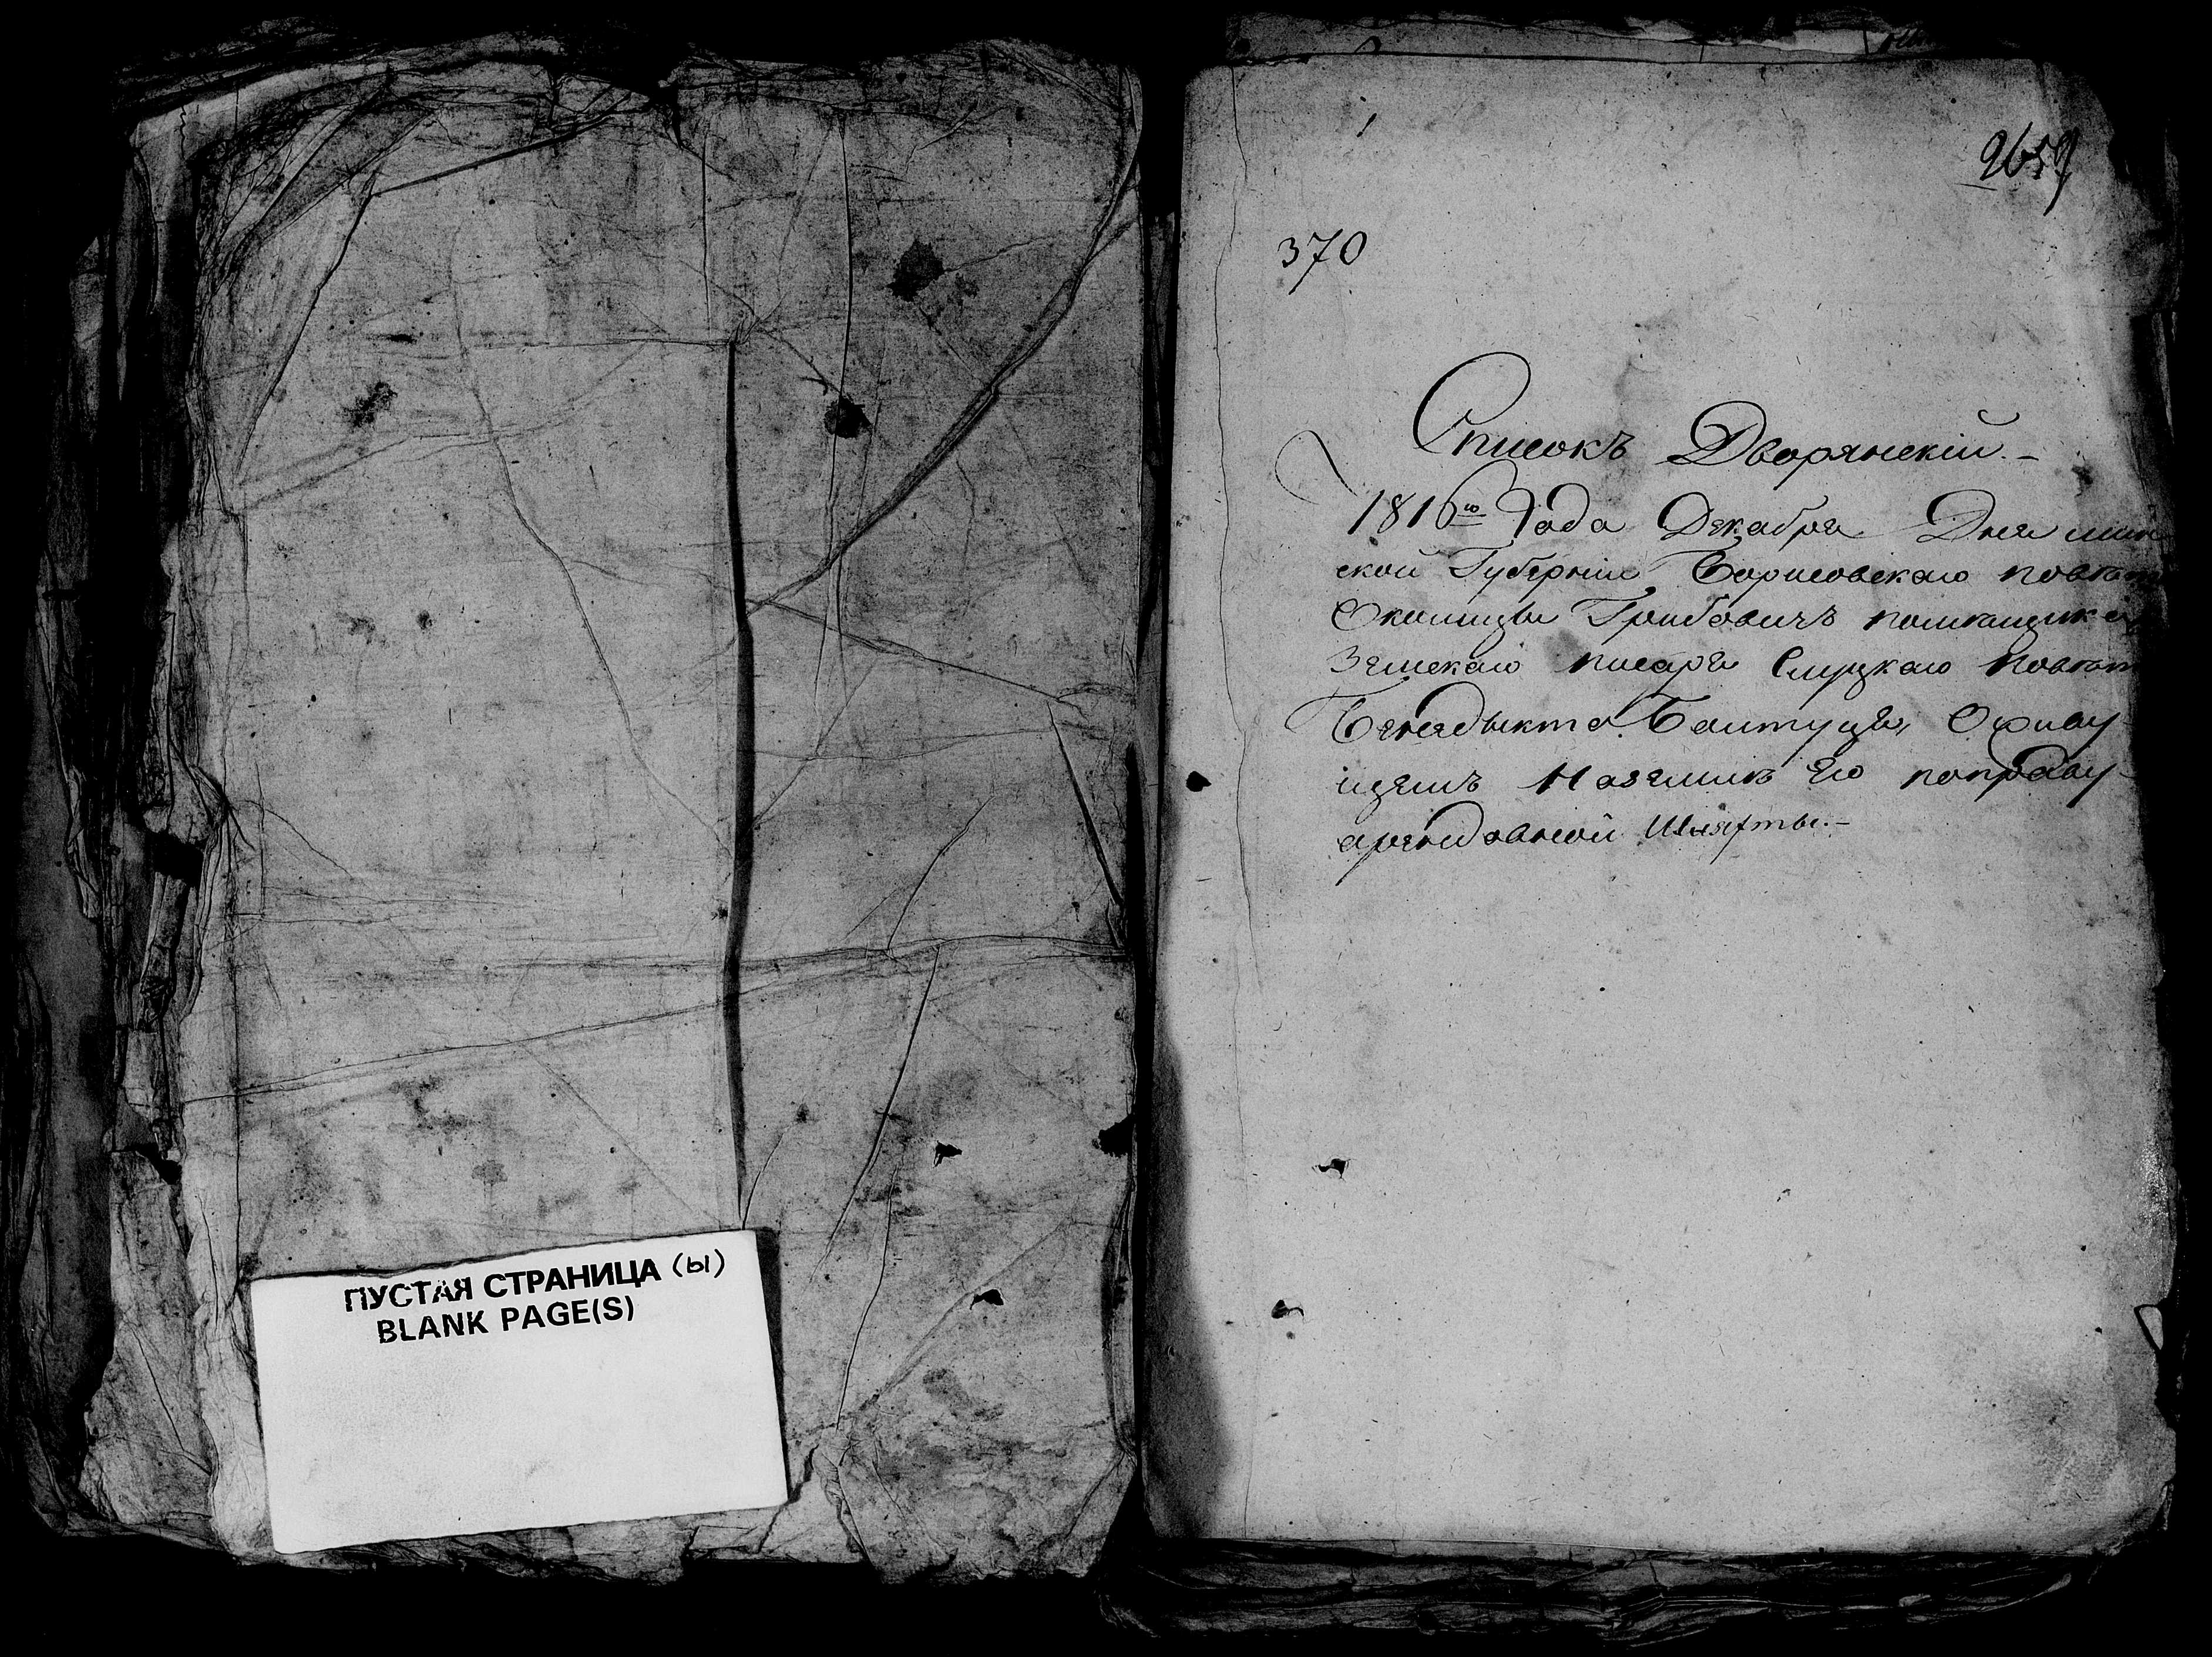 ПУСТАЯ СТРАНИЦА (Ы)
BLANK PAGE(S)
2659
370
Списокъ Дворянскій.-
1816го Года Декабря Дня мин
ской Губерніи Борисовскаго повѣт
Околицы Грибовичъ помѣщика
Земскаго писаря Слуцкаго повѣт
Бенедыкта
ицемъ Наземлѣ Его поправу
арендовной Шляхты.-